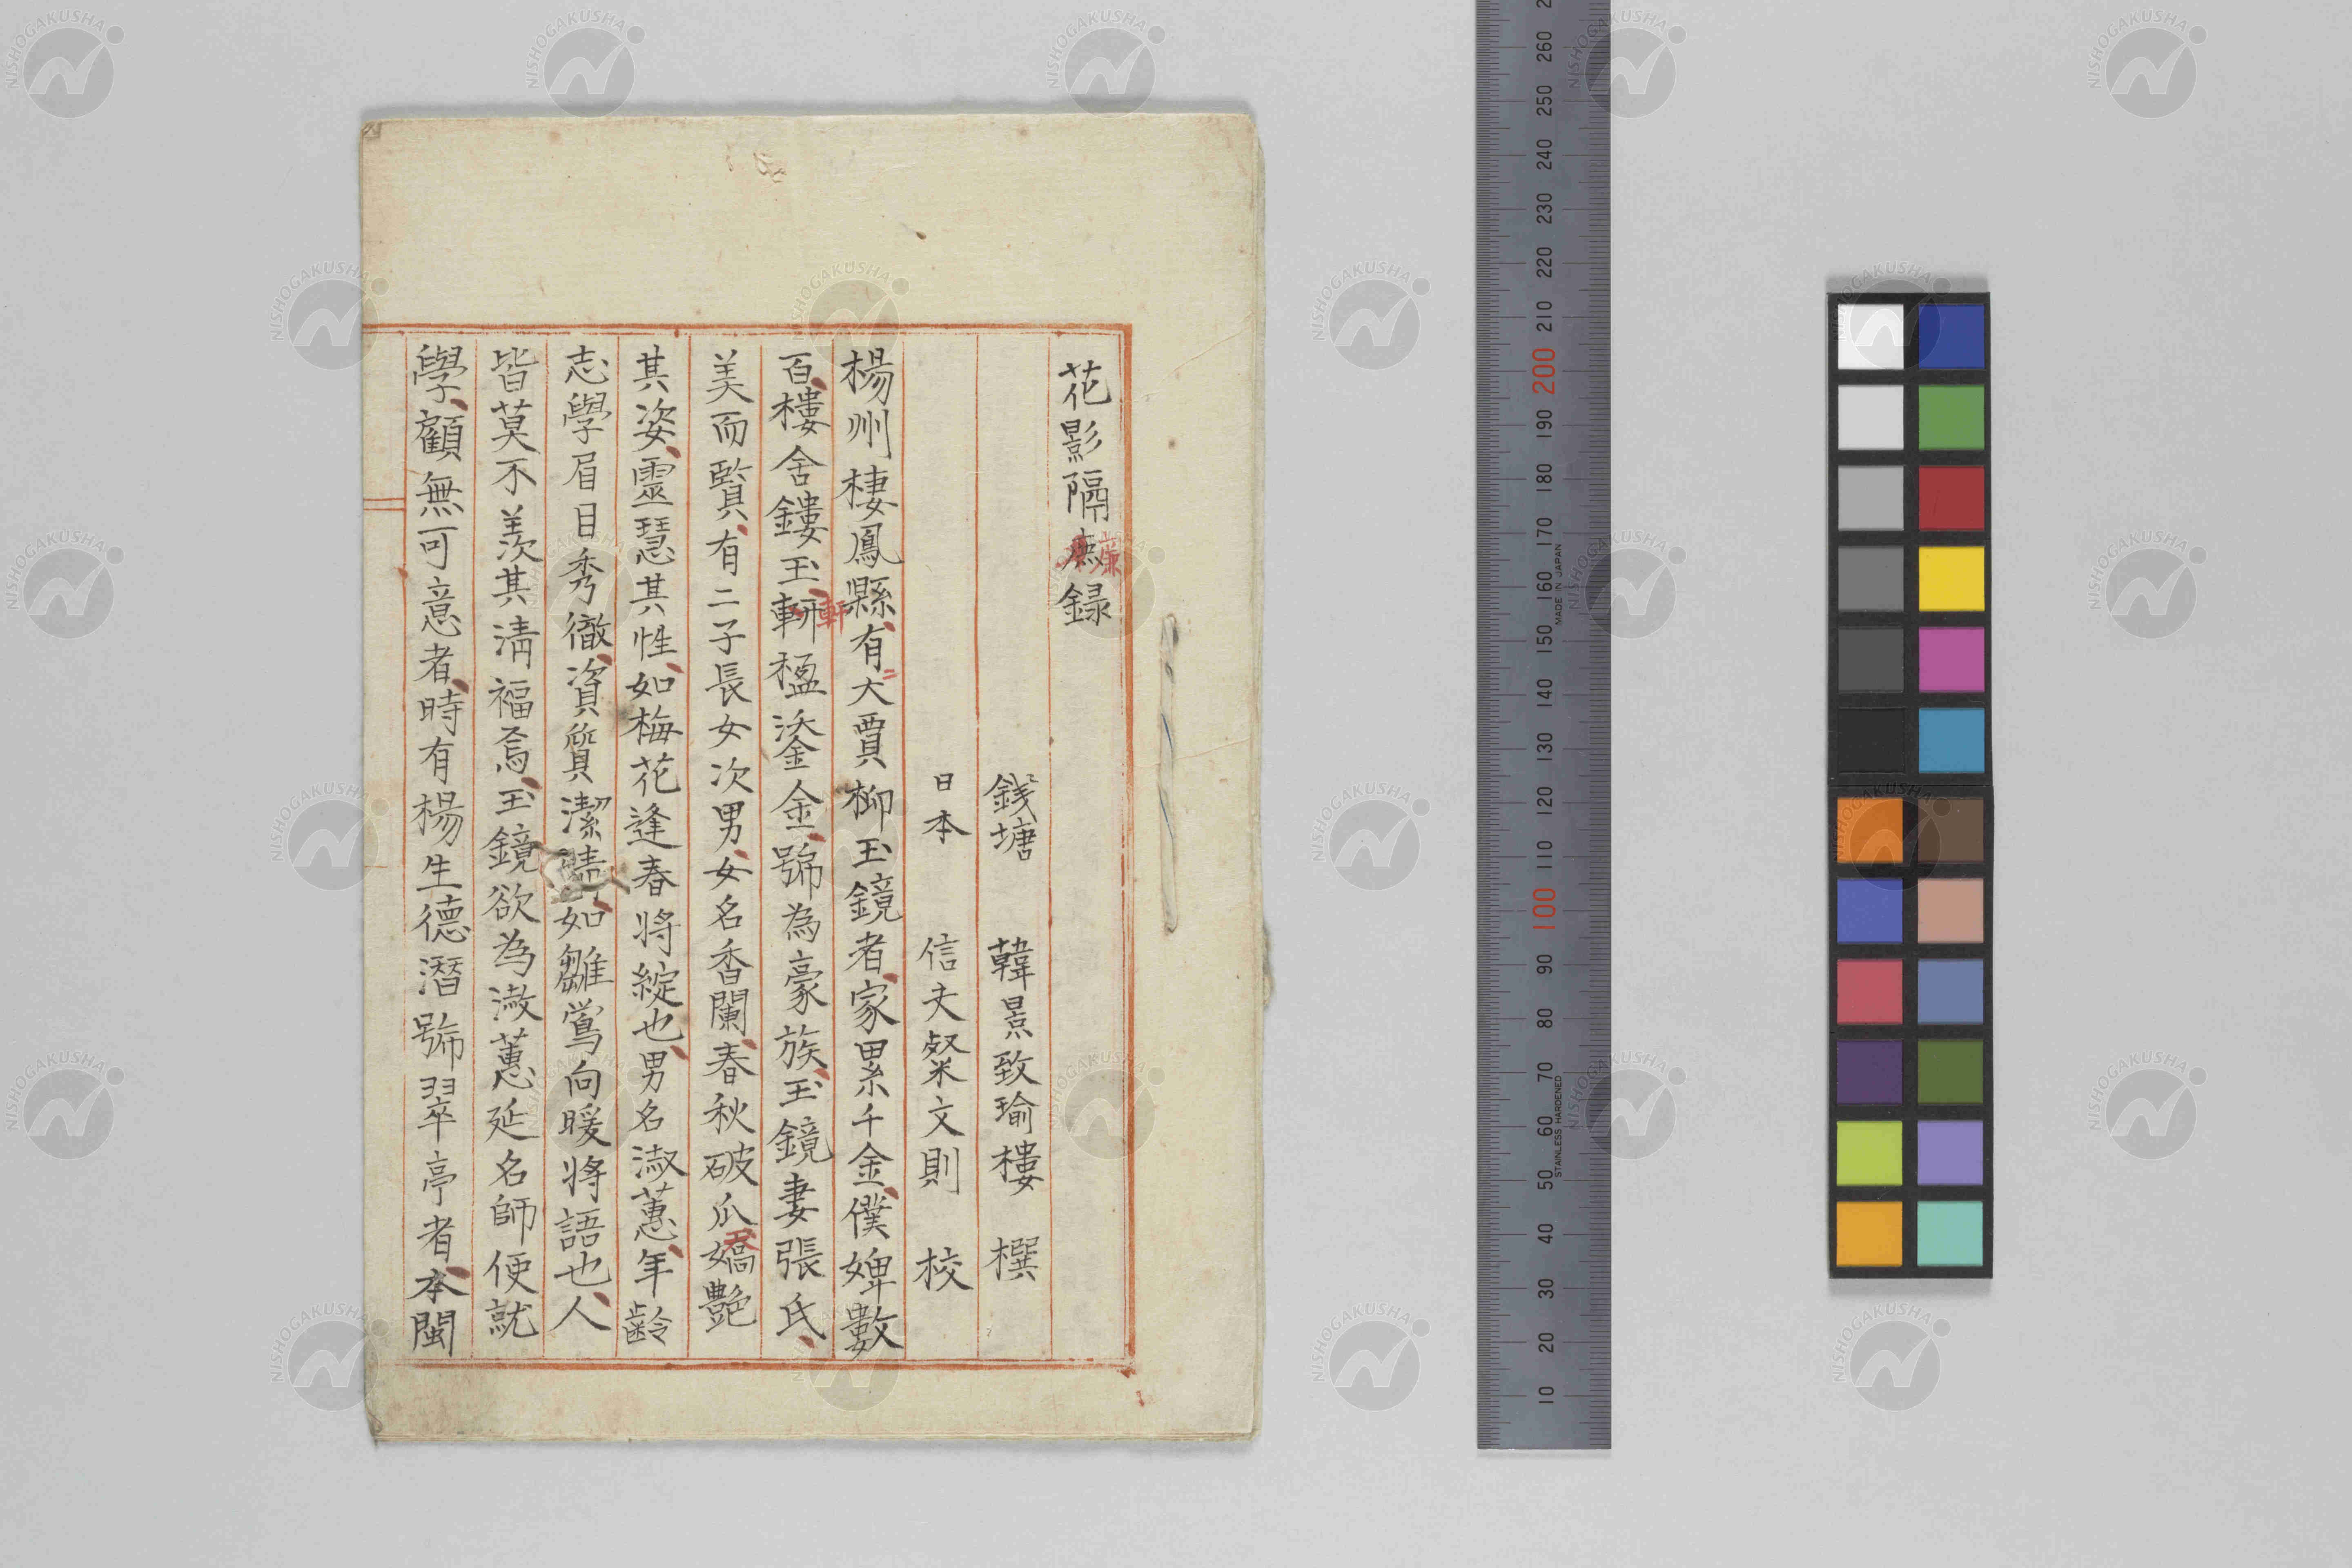 花影隔庶録
簾
錢塘 韓景致瑜樓 撰
日本 信夫粲文則 校
楊州棲鳳縣有大賈柳玉鏡者家累千金僕婢數
百樓舍鏤玉軿楹鋈金號為豪族玉鏡妻張氏
軒
美而賢有二子長女次男女名香闌春秋破瓜嬌艷
其姿靈慧其性如梅花逢春將綻也男名淑蕙年齡
志學眉目秀徹資質潔晴如雛鶯向暖將語也人
皆莫不羨其清福焉玉鏡欲為淑蕙延名師便就
學顧無可意者時有楊生德潛號翠亭者本閩
NISHOGAKUSHA
260
250
240
230
220
210
200
190
180
170
160
150
140
130
120
110
100
90
80
70
60
50
40
30
20
10
MADE IN JAPAN
STAINLESS HARDENED